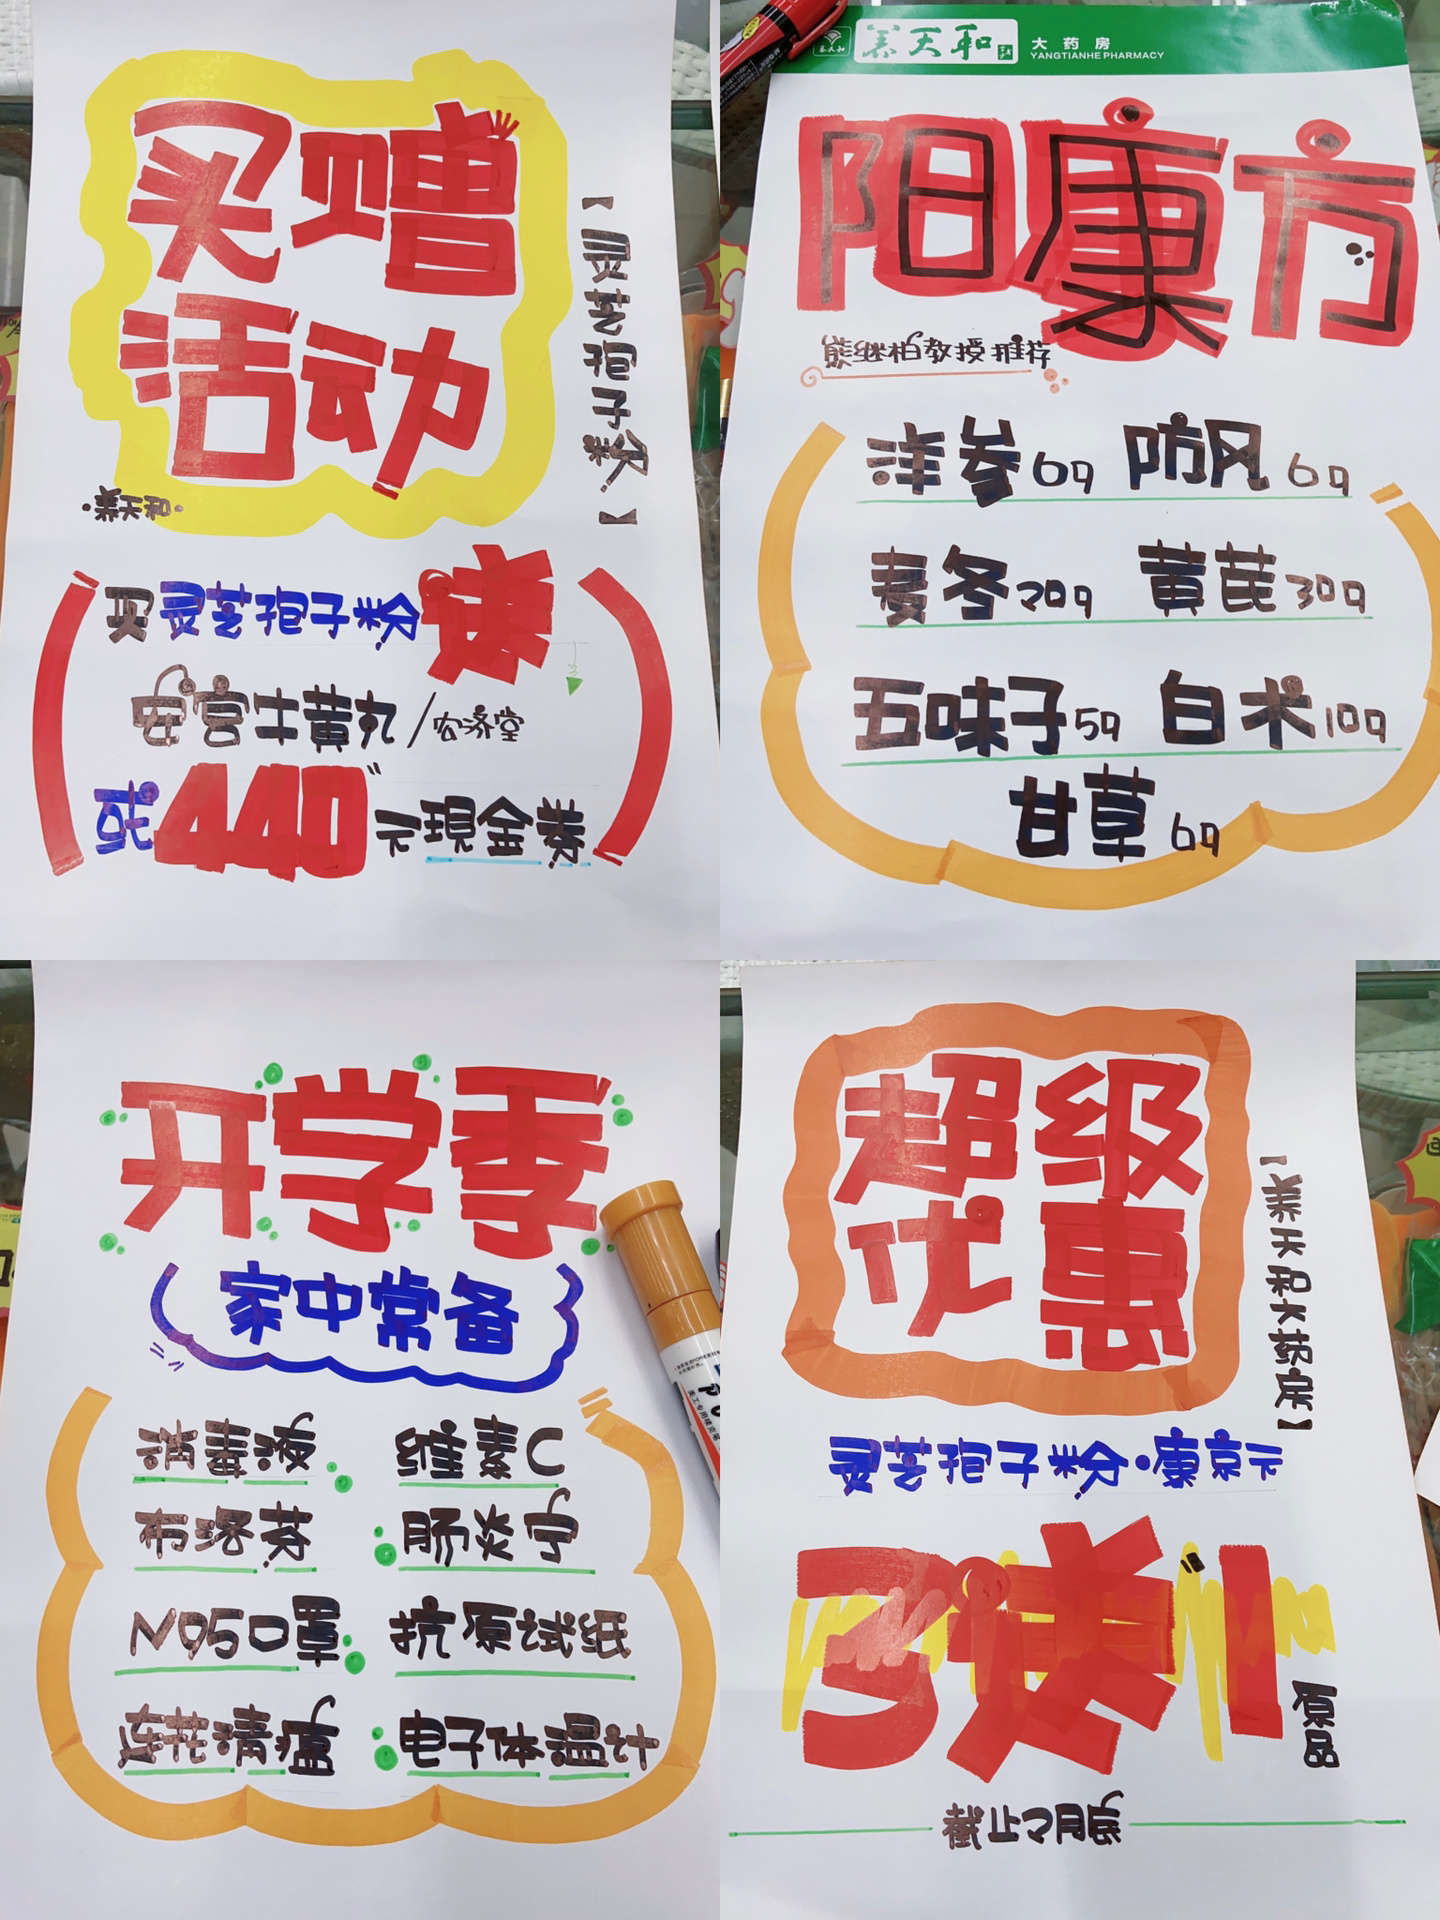 买赠
活动
【灵芝孢子粉】
·养天和·
买灵芝孢子粉送
安宫牛黄丸/宏济堂
或440元现金券
养天和 大药房
YANGTIANHE PHARMACY
阳康方
熊继柏教授推荐
洋参6g 防风6g
麦冬20g 黄芪30g
五味子5g 白术10g
甘草6g
开学季
家中常备
消毒液 维素C
布洛芬 肠炎宁
N95口罩 抗原试纸
连花清瘟 电子体温计
超级
优惠
【养天和大药房】
灵芝孢子粉·康京元
3送1
原品
截止2月底